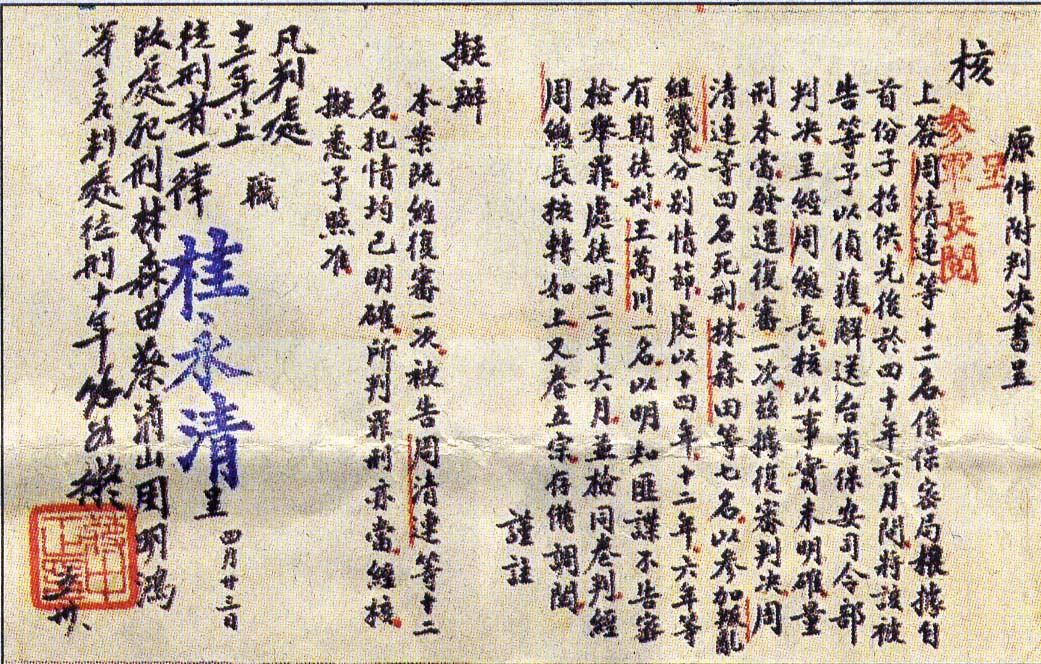 原件附判決書呈
核
呈
參軍長閱
上簽周清連等十二名係保密局檢據自
首份子指供先後於四十年六月間將該被
告等予以偵獲解送台省保安司令部
判決呈經周總長核以事實未明確量
刑未當發還復審一次茲據復審判決周
清連等四名死刑林森田等七名以參加叛亂
組織罪分別情節處以十四年十二年六年等
有期徒刑王萬川一名以明知匪諜不告密
檢舉罪處徒刑二年六月並檢同卷判經
周總長核轉如上又卷五宗存備調閱
謹註
擬辦
本案既經復審一次被告周清連等十二
名犯情均已明確所判罪刑亦當經核
擬悉予照准
職
桂永清
呈
四月廿三日
凡判處
十二年以上
徒刑者一律
改處死刑林森田蔡消山周明鴻
等三名判處徒刑十年餘如擬
蔣中正印